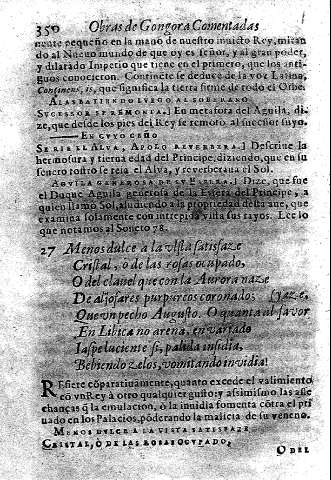 350 Obras de Gongora Comentadas
nente pequeño en la mano de nuestro invicto Rey, miran
do al Nuevo mundo de que oy es señor, y al gran poder,
y dilatado Imperio que tiene en el primero, que los anti
guos conocieron. Continēte se deduce de la voz Latina,
Continens, is, que significa la tierra firme de todo el Orbe.
ALAS BATIENDO LUEGO AL SOBERANO
SUCESSOR SE REMONTA.] En metafora del Aguila, di-
ze, que desde los pies del Rey se remotò al successor suyo.
— EN CUYO CEÑO
SE RIE EL ALVA, APOLO REVERBERA.] Descrive la
hermosura y tierna edad del Principe, diziendo, que en su
senero rostro se reia el Alva, y reverberava el Sol.
AGUILA GENEROSA DE SU ESFERA.] Dize, que fue
el Duque Aguila generosa de la Esfera del Principe, a
quien llamò Sol, aludiendo a la propriedad desta ave, que
examina solamente con intrepida vista sus rayos. Lee lo
que notamos al Soneto 78.
27 Menos dulce a la vista satisfaze
Cristal, o de las rosas ocupado,
O del clavel que con la Aurora naze
De aljofares purpureos coronado; [yaze,
Que un pecho Augusto. O quanta al favor
En Libica no arena, en variado
Iaspe luciente si, palida insidia,
Bebiendo zelos, vomitando invidia!
REfiere cōparativamente, quanto excede el valimiento
cō un Rey a otro qualquier gusto: y assimismo las asse
chanças q̄ la emulacion, ò la invidia fomenta cōtra el pri
vado en los Palacios, pōderando la malicia de su veneno.
MENOS DULCE A LA VISTA SATISFAZE
CRISTAL, Ò DE LAS ROSAS OCUPADO,
O DEL